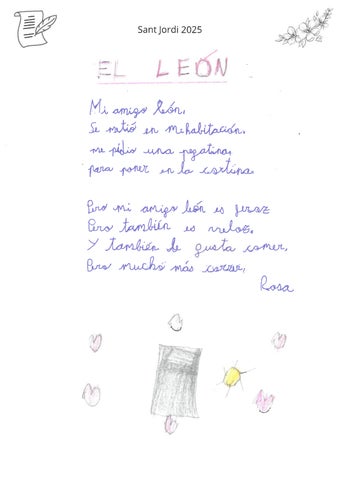 Sant Jordi 2025
EL LEÓN
Mi amigo león,
Se metió en mehabitación,
me pidio una pegatina,
para poner en la cortina.
Pero mi amigo león es feraz
Pero también es veloz,
Y también le gusta comer,
Pero mucho más correr,
Rosa